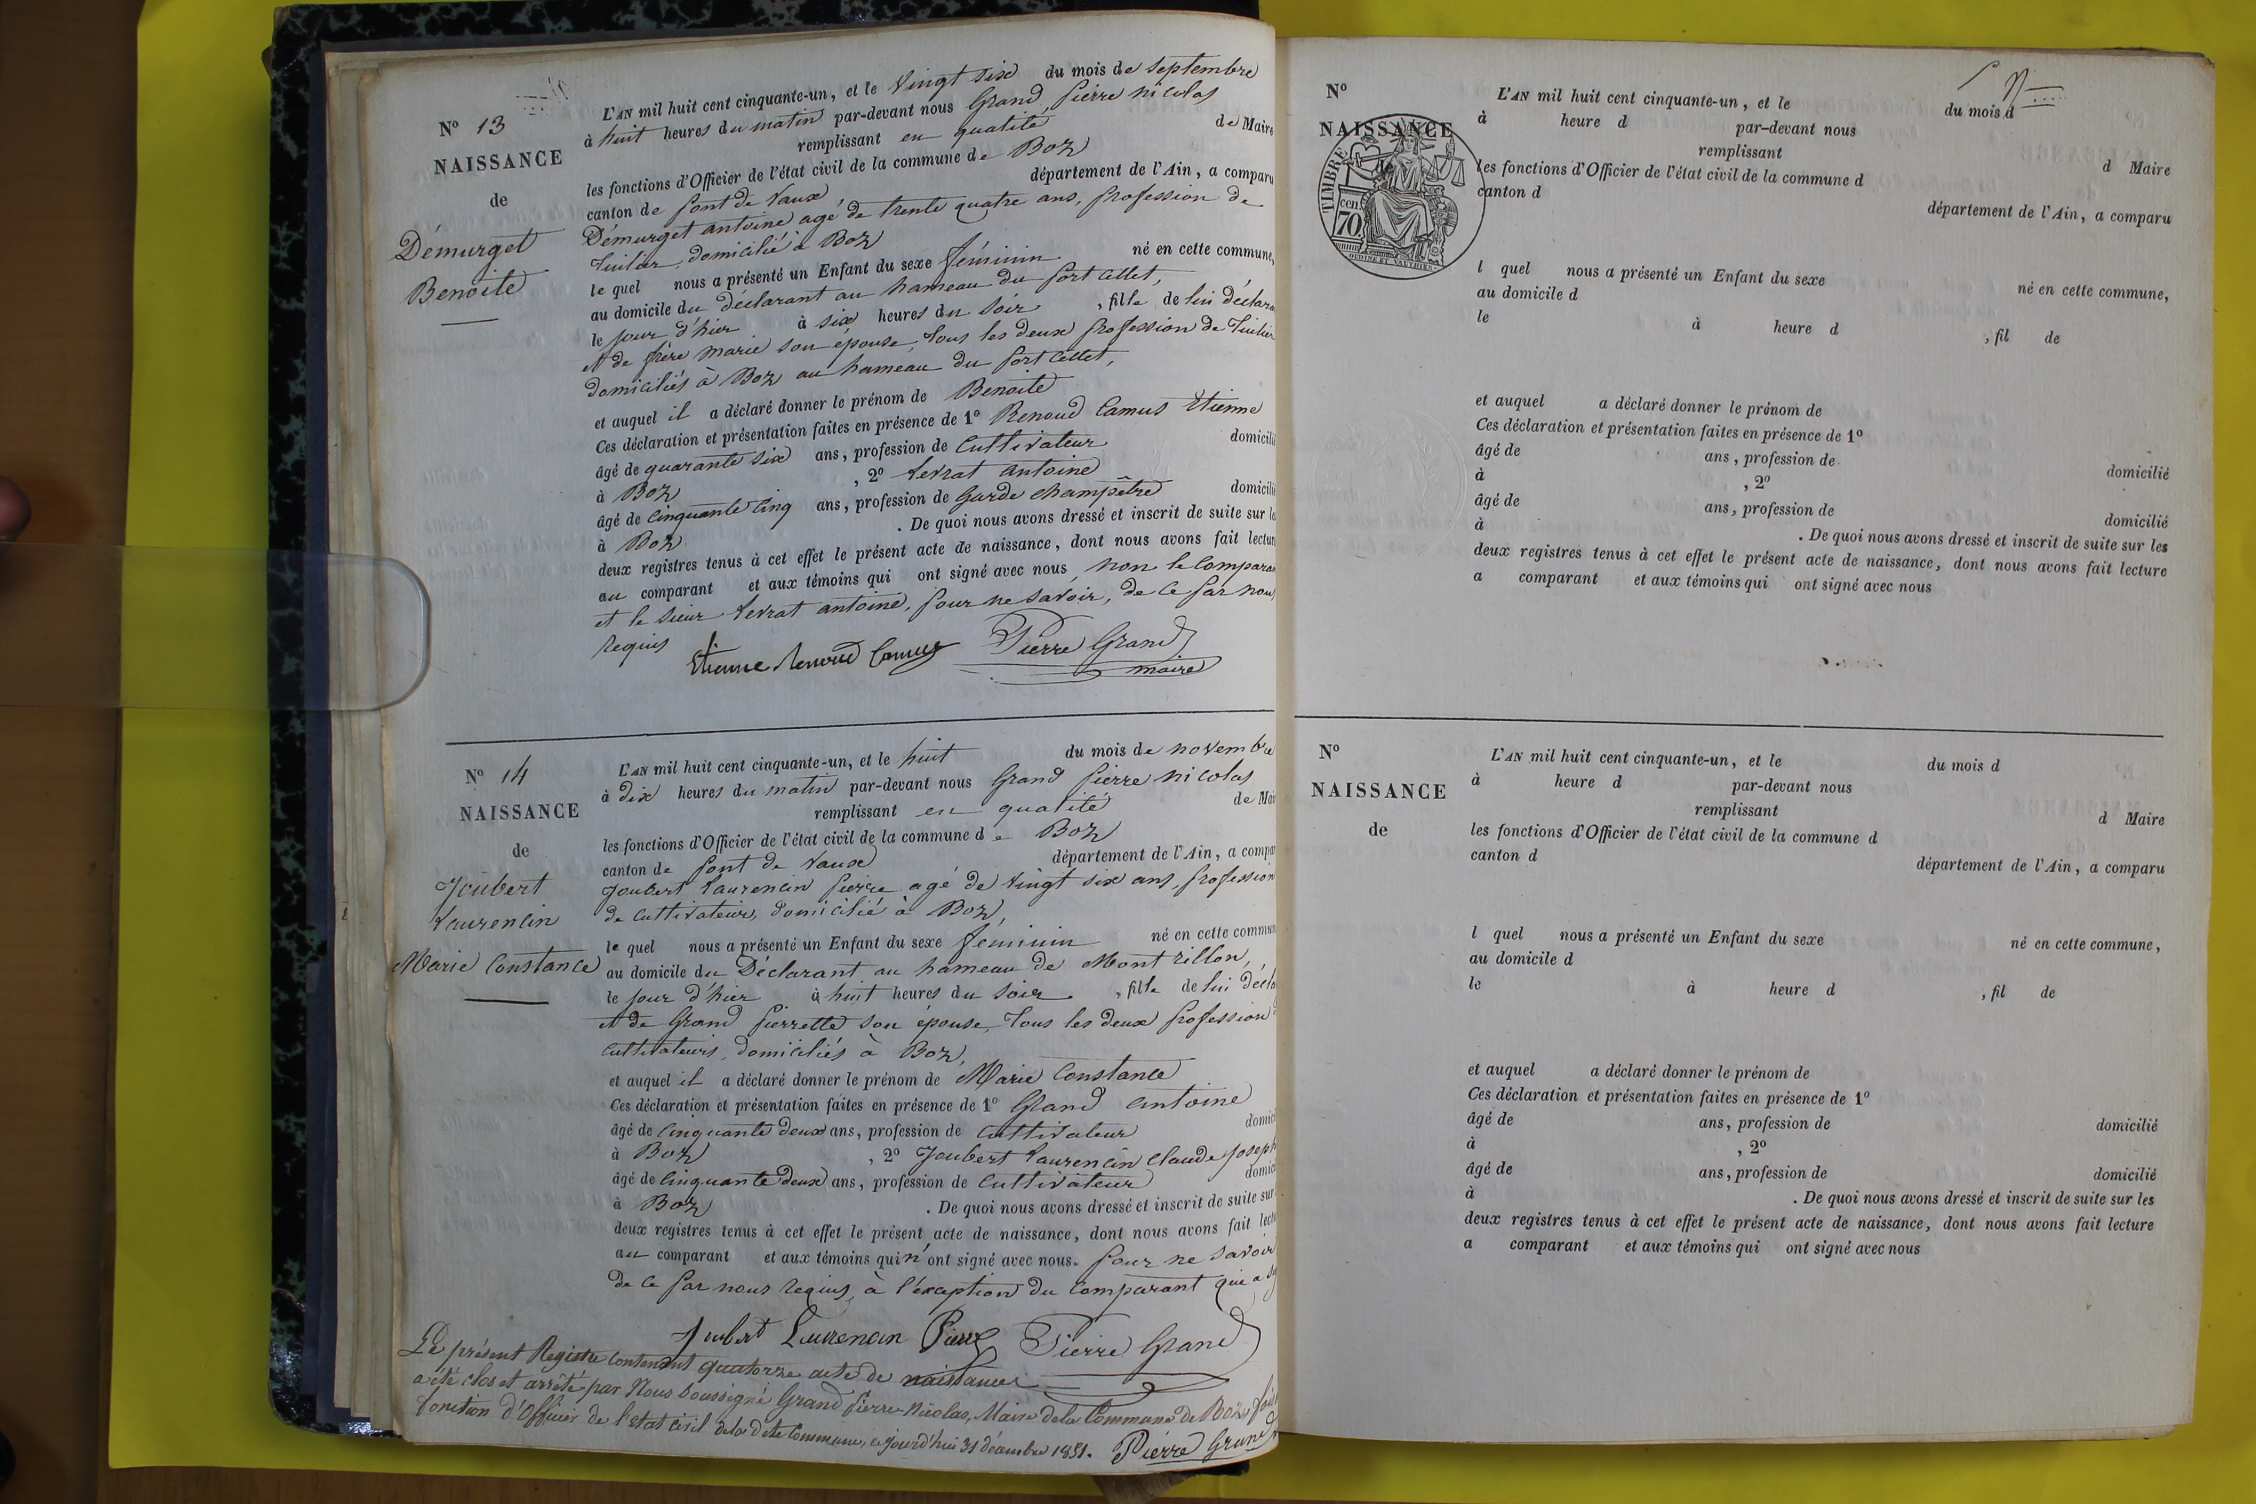 N° 13
NAISSANCE
de
Démurget
Benoite
L'AN mil huit cent cinquante-un, et le Vingt six du mois de Septembre
à huit heures du matin par-devant nous Grand Pierre nicolas
remplissant en qualité de Maire
les fonctions d'Officier de l'état civil de la commune de Boz
canton de Pont de Vaux département de l'Ain, a comparu
Démurget antoine agé de trente quatre ans, Profession de
tuilier, domicilié à Boz
le quel nous a présenté un Enfant du sexe féminin né en cette commune,
au domicile du Déclarant au hameau du Port Cellet,
le jour d'hier à six heures du soir, fille de lui déclara
et de frère marie son épouse, tous les deux Profession de tuilier
domiciliés à Boz au hameau du Port Cellet,
et auquel il a déclaré donner le prénom de Benoite
Ces déclaration et présentation faites en présence de 1° Renoud Camus Etienne
âgé de quarante six ans, profession de Cultivateur domicilié
à Boz, 2° Levrat antoine
âgé de cinquante cinq ans, profession de Garde champêtre domicilié
à Boz. De quoi nous avons dressé et inscrit de suite sur le
deux registres tenus à cet effet le présent acte de naissance, dont nous avons fait lectur
au comparant et aux témoins qui ont signé avec nous, non le Compara
et le sieur Levrat antoine, Pour ne savoir, de ce Par nous
requis
Etienne Renoud Camus Pierre Grand
maire
N° 14
NAISSANCE
de
Joubert
Laurencin
Marie Constance
L'AN mil huit cent cinquante-un, et le huit du mois de novembre
à dix heures du matin par-devant nous Grand Pierre nicolas
remplissant en qualité de Mai
les fonctions d'Officier de l'état civil de la commune de Boz
canton de Pont de Vaux département de l'Ain, a compar
Joubert Laurencin Pierre agé de Vingt six ans, Profession
de cultivateur, domicilié à Boz,
le quel nous a présenté un Enfant du sexe féminin né en cette commun
au domicile du Déclarant au hameau de Montrillon,
le jour d'hier à huit heures du soir, fille de lui décla
et de Grand Pierrette son épouse, tous les deux Profession
cultivateurs, domiciliés à Boz,
et auquel il a déclaré donner le prénom de Marie Constance
Ces déclaration et présentation faites en présence de 1° Grand antoine
âgé de cinquante deux ans, profession de Cultivateur domici
à Boz, 2° Joubert Laurencin Claude Joseph
âgé de cinquante deux ans, profession de cultivateur domici
à Boz. De quoi nous avons dressé et inscrit de suite sur
deux registres tenus à cet effet le présent acte de naissance, dont nous avons fait lectu
au comparant et aux témoins qui n'ont signé avec nous. Pour ne savoir
de ce Par nous requis, à l'exception du Comparant qui a
Joubert Laurencin Pierre Pierre Grand
Le présent Registre contenant quatorze acte de naissances
a été clos et arrêté par Nous soussigné Grand Pierre-Nicolas, Maire de la Commune de Boz
fonction d'Officier de l'état civil de la dite Commune, ce jourd'hui 31 décembre 1851. Pierre Grand
N°
NAISSANCE
TIMBRE
cen.
70.
OUDINÉ ET VAUTHIER
L'AN mil huit cent cinquante-un, et le du mois d
à heure d par-devant nous
remplissant
les fonctions d'Officier de l'état civil de la commune d d Maire
canton d
département de l'Ain, a comparu
l quel nous a présenté un Enfant du sexe né en cette commune,
au domicile d
le à heure d, fil de
et auquel a déclaré donner le prénom de
Ces déclaration et présentation faites en présence de 1°
âgé de ans, profession de domicilié
à, 2°
âgé de ans, profession de domicilié
à. De quoi nous avons dressé et inscrit de suite sur les
deux registres tenus à cet effet le présent acte de naissance, dont nous avons fait lecture
a comparant et aux témoins qui ont signé avec nous
N°
NAISSANCE
de
L'AN mil huit cent cinquante-un, et le du mois d
à heure d par-devant nous
remplissant
d Maire
les fonctions d'Officier de l'état civil de la commune d
canton d département de l'Ain, a comparu
l quel nous a présenté un Enfant du sexe né en cette commune,
au domicile d
le à heure d, fil de
et auquel a déclaré donner le prénom de
Ces déclaration et présentation faites en présence de 1°
âgé de ans, profession de domicilié
à, 2°
âgé de ans, profession de domicilié
à. De quoi nous avons dressé et inscrit de suite sur les
deux registres tenus à cet effet le présent acte de naissance, dont nous avons fait lecture
a comparant et aux témoins qui ont signé avec nous